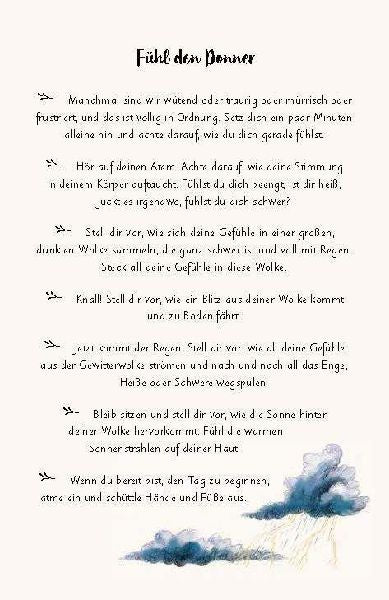 Fühl den Donner
Manchmal sind wir wütend oder traurig oder mürrisch oder
frustriert, und das ist völlig in Ordnung. Setz dich ein paar Minuten
alleine hin und achte darauf, wie du dich gerade fühlst.
Hör auf deinen Atem. Achte darauf, wie deine Stimmung
in deinem Körper auftaucht. Fühlst du dich beengt, ist dir heiß,
juckt es irgendwo, fühlst du dich schwer?
Stell dir vor, wie sich deine Gefühle in einer großen,
dunklen Wolke sammeln, die ganz schwer ist und voll mit Regen.
Steck all deine Gefühle in diese Wolke.
Knall! Stell dir vor, wie ein Blitz aus deiner Wolke kommt
und zu Boden fährt.
Jetzt kommt der Regen. Stell dir vor, wie all deine Gefühle
aus der Gewitterwolke strömen und nach und nach all das Enge,
Heiße oder Schwere wegspülen.
Bleib sitzen und stell dir vor, wie die Sonne hinter
deiner Wolke hervorkommt. Fühl die warmen
Sonnenstrahlen auf deiner Haut.
Wenn du bereit bist, den Tag zu beginnen,
atme ein und schüttle Hände und Füße aus.